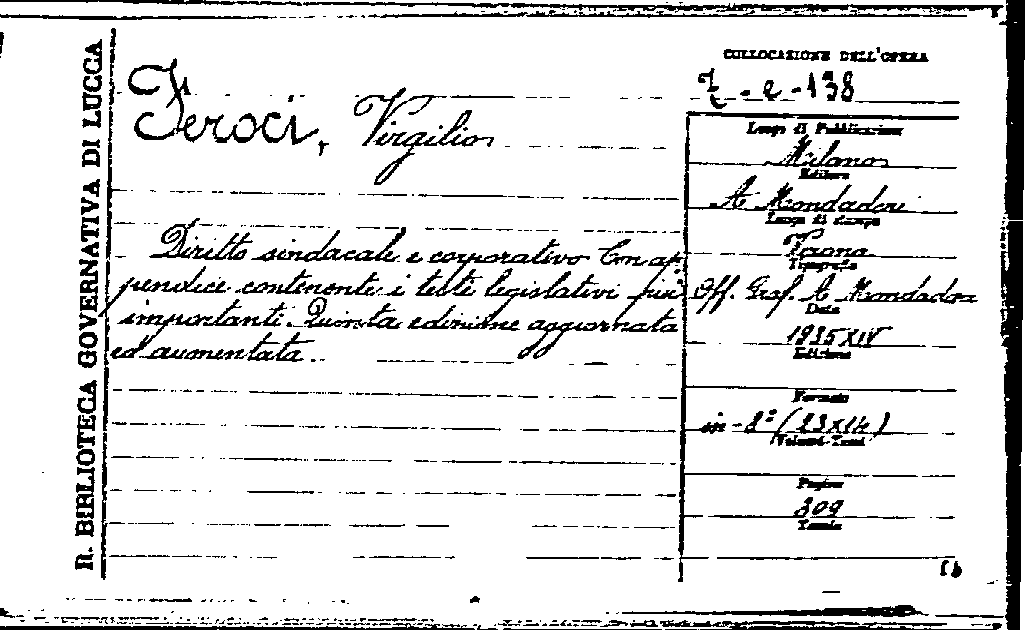 R. BIBLIOTECA GOVERNATIVA DI LUCCA
Feroci, Virgilio
Diritto sindacale e corporativo Con ap
pendice contenente i testi legislativi più
importanti. Quinta edizione aggiornata
ed aumentata.
COLLOCAZIONE DELL'OPERA
Z - 2 - 138
Luogo di Pubblicazione
Milano
Editore
A Mondadori
Luogo di stampa
Verona
Tipografia
Off. Graf. A Mondadori
Data
1935 XIV
Edizione
Formato
in-8° (23x14)
Volumi-Tomi
Pagine
309
Tavole